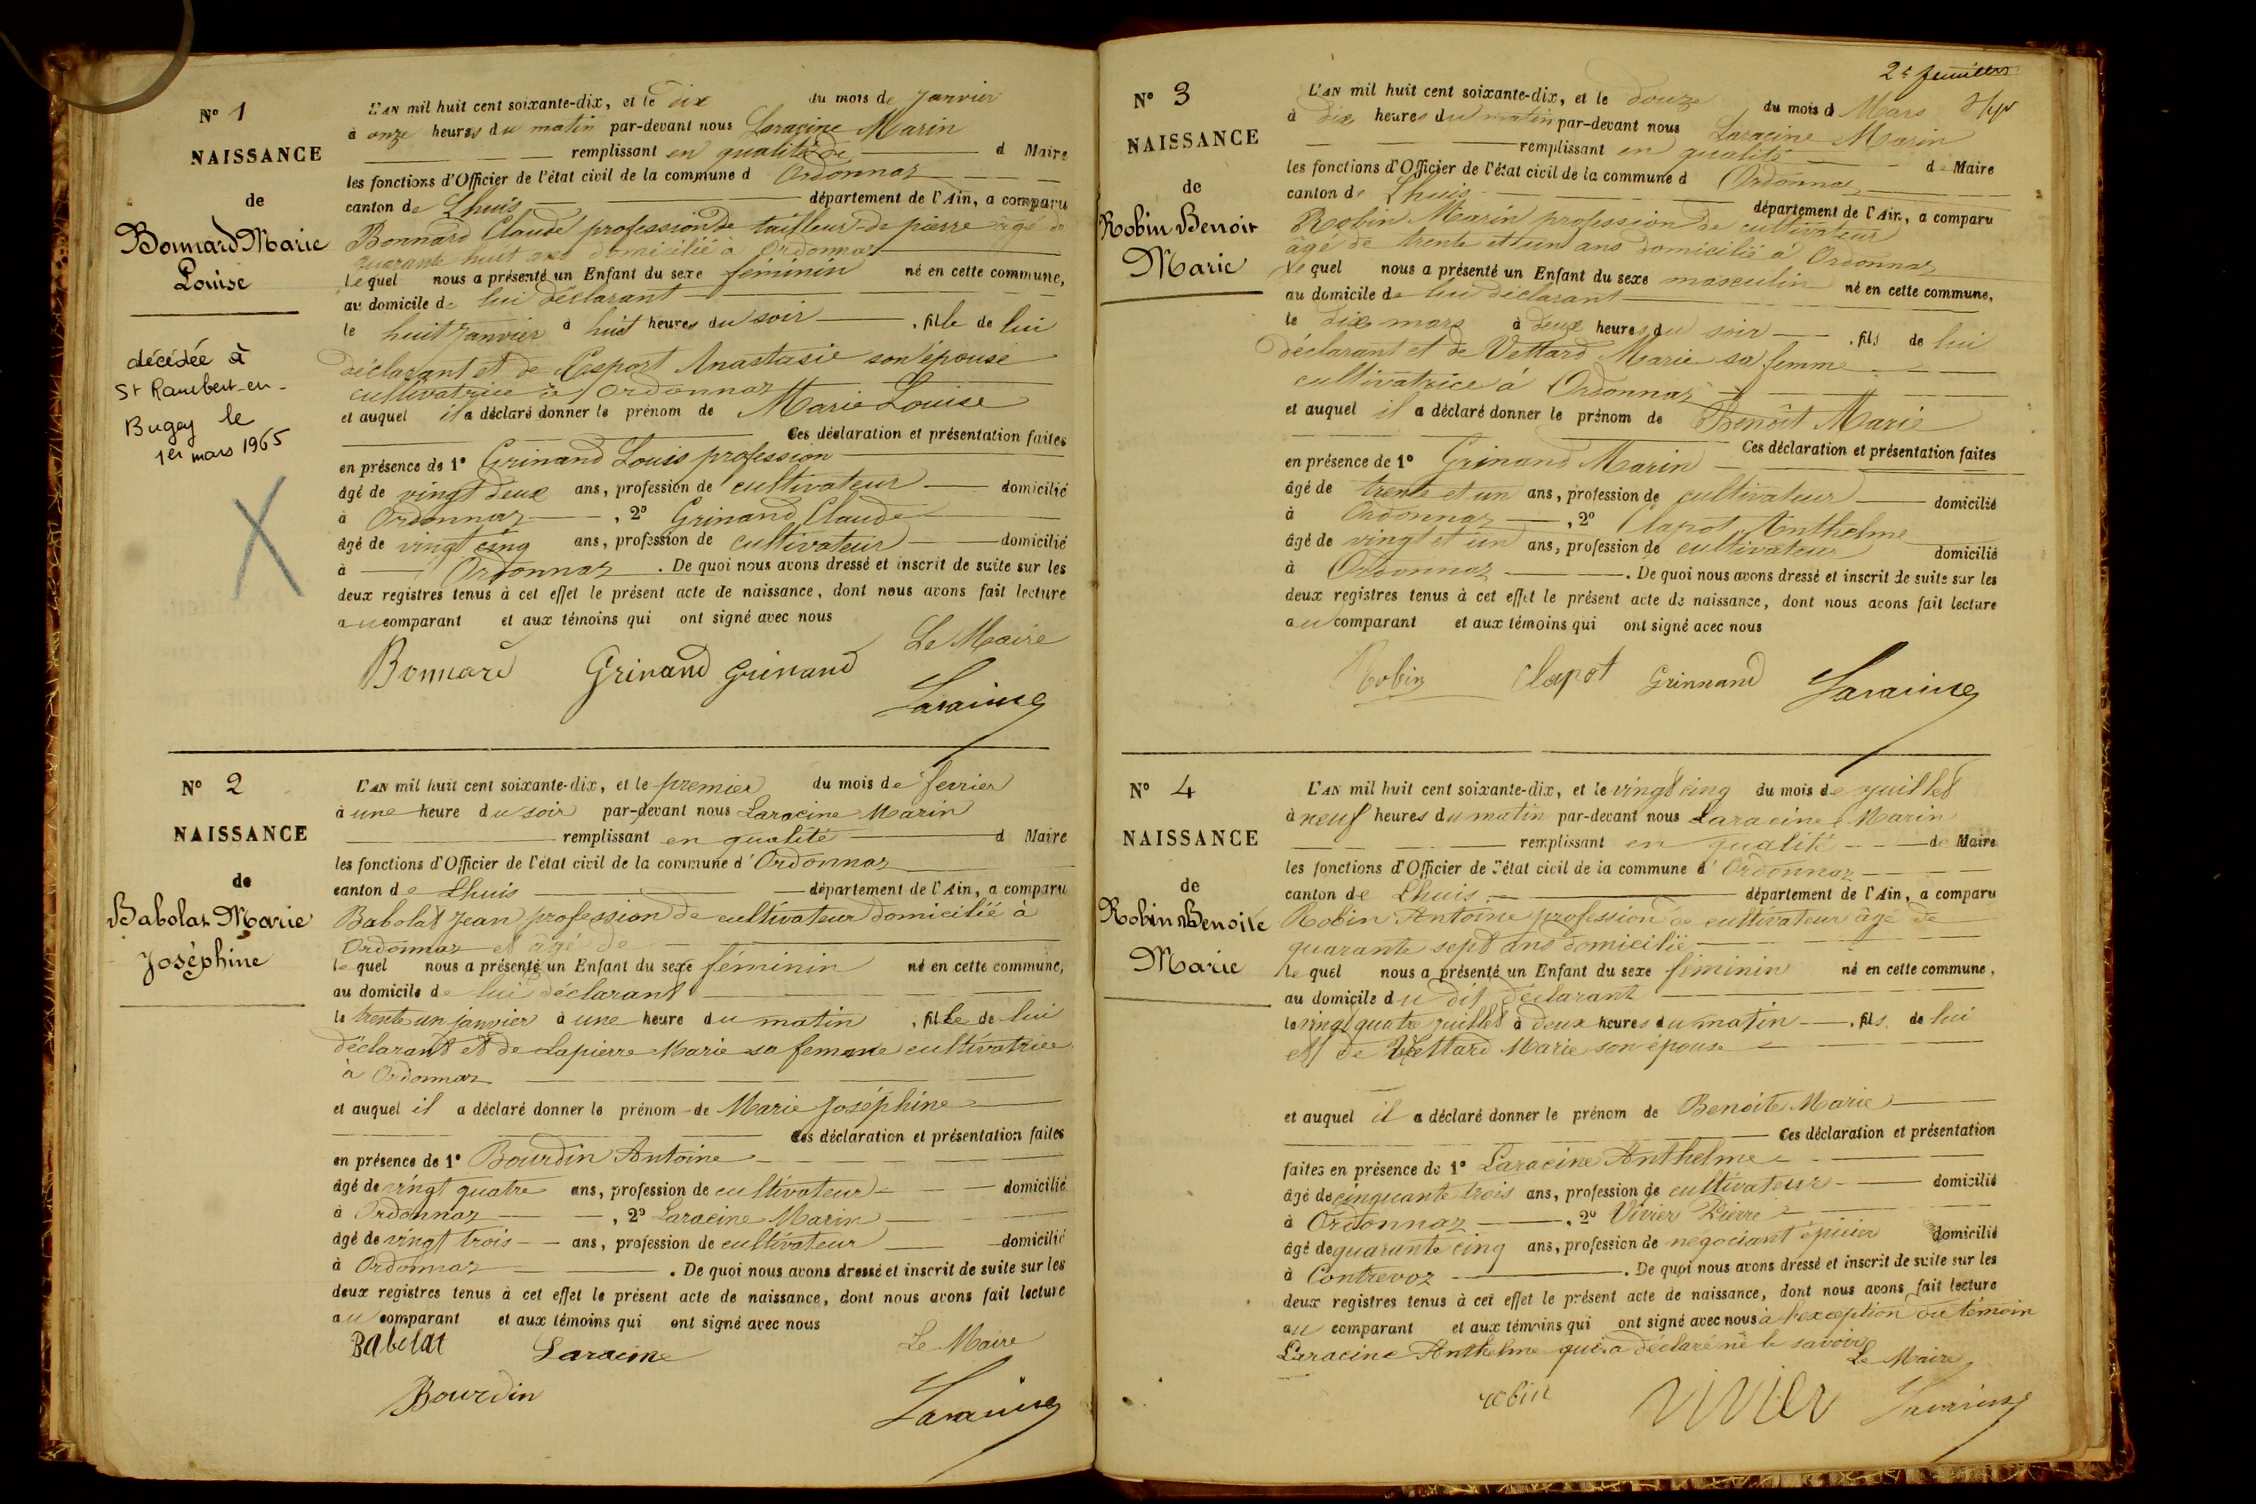 N° 1
NAISSANCE
de
Bonnard Marie
Louise
décédée à
St Rambert-en-
Bugey le
1er mars 1965
L'AN mil huit cent soixante-dix, et le dix du mois de Janvier
à onze heures du matin par-devant nous Laracine Marin
remplissant en qualité de d Maire
les fonctions d'Officier de l'état civil de la commune d Ordonnaz
canton de Lhuis département de l'Ain, a comparu
Bonnard Claude profession de tailleur de pierre âgé de
quarante huit ans domicilié à Ordonnaz
lequel nous a présenté un Enfant du sexe féminin né en cette commune,
au domicile de lui déclarant
le huit janvier à huit heures du soir , fille de lui
déclarant et de Anastasie son épouse
cultivatrice à Ordonnaz
et auquel il a déclaré donner le prénom de Marie Louise
Ces déclaration et présentation faites
en présence de 1° Grinand Louis profession
âgé de vingt deux ans, profession de cultivateur domicilié
à Ordonnaz , 2° Grinand Claude
âgé de vingt cinq ans, profession de cultivateur domicilié
à Ordonnaz . De quoi nous avons dressé et inscrit de suite sur les
deux registres tenus à cet effet le présent acte de naissance, dont nous avons fait lecture
au comparant et aux témoins qui ont signé avec nous
Le Maire
Bonnard Grinand Grinand
Laracine
N° 2
NAISSANCE
de
Babolat Marie
Joséphine
L'AN mil huit cent soixante-dix, et le premier du mois de fevrier
à une heure du soir par-devant nous Laracine Marin
remplissant en qualité d Maire
les fonctions d'Officier de l'état civil de la commune d'Ordonnaz
canton de Lhuis département de l'Ain, a comparu
Babolat Jean profession de cultivateur domicilié à
Ordonnaz et âgé de
lequel nous a présenté un Enfant du sexe féminin né en cette commune,
au domicile de lui déclarant
le trente un janvier à une heure du matin , fille de lui
déclarant et de Lapierre Marie sa femme cultivatrice
à Ordonnaz
et auquel il a déclaré donner le prénom de Marie Joséphine
Ces déclaration et présentation faites
en présence de 1° Bourdin Antoine
âgé de vingt quatre ans, profession de cultivateur domicilié
à Ordonnaz , 2° Laracine Marin
âgé de vingt trois ans, profession de cultivateur domicilié
à Ordonnaz . De quoi nous avons dressé et inscrit de suite sur les
deux registres tenus à cet effet le présent acte de naissance, dont nous avons fait lecture
au comparant et aux témoins qui ont signé avec nous
Babolat Laracine Le Maire
Bourdin Laracine
2e feuillet
N° 3
NAISSANCE
de
Robin Benoit
Marie
L'AN mil huit cent soixante-dix, et le douze du mois d Mars
à dix heures du matin par-devant nous Laracine Marin
remplissant en qualité de Maire
les fonctions d'Officier de l'état civil de la commune d Ordonnaz
canton de Lhuis département de l'Ain, a comparu
Robin Marin profession de cultivateur
âgé de trente et un ans domicilié à Ordonnaz
lequel nous a présenté un Enfant du sexe masculin né en cette commune,
au domicile de lui déclarant
le dix mars à deux heures du soir , fils de lui
déclarant et de Vettard Marie sa femme
cultivatrice à Ordonnaz
et auquel il a déclaré donner le prénom de Benoit Marie
Ces déclaration et présentation faites
en présence de 1° Grinand Marin
âgé de trente et un ans, profession de cultivateur domicilié
à Ordonnaz , 2° Clapot Anthelme
âgé de vingt et un ans, profession de cultivateur domicilié
à Ordonnaz . De quoi nous avons dressé et inscrit de suite sur les
deux registres tenus à cet effet le présent acte de naissance, dont nous avons fait lecture
au comparant et aux témoins qui ont signé avec nous
Robin Clapot Grinnand Laracine
N° 4
NAISSANCE
de
Robin Benoite
Marie
L'AN mil huit cent soixante-dix, et le vingt cinq du mois de juillet
à neuf heures du matin par-devant nous Laracine Marin
remplissant en qualité de Maire
les fonctions d'Officier de l'état civil de la commune d'Ordonnaz
canton de Lhuis département de l'Ain, a comparu
Robin Antoine profession de cultivateur âgé de
quarante sept ans domicilié
lequel nous a présenté un Enfant du sexe féminin né en cette commune,
au domicile du dit déclarant
le vingt quatre juillet à deux heures du matin , fils de lui
et de Vettard Marie son épouse
et auquel il a déclaré donner le prénom de Benoite Marie
Ces déclaration et présentation
faites en présence de 1° Laracine Anthelme
âgé de cinquante trois ans, profession de cultivateur domicilié
à Ordonnaz , 2° Vivier Pierre
âgé de quarante cinq ans, profession de negociant épicier domicilié
à Contrevoz . De quoi nous avons dressé et inscrit de suite sur les
deux registres tenus à cet effet le présent acte de naissance, dont nous avons fait lecture
au comparant et aux témoins qui ont signé avec nous à l'exception du témoin
Laracine Anthelme qui a déclaré ne le savoir
Le Maire
robin Vivier Laracine